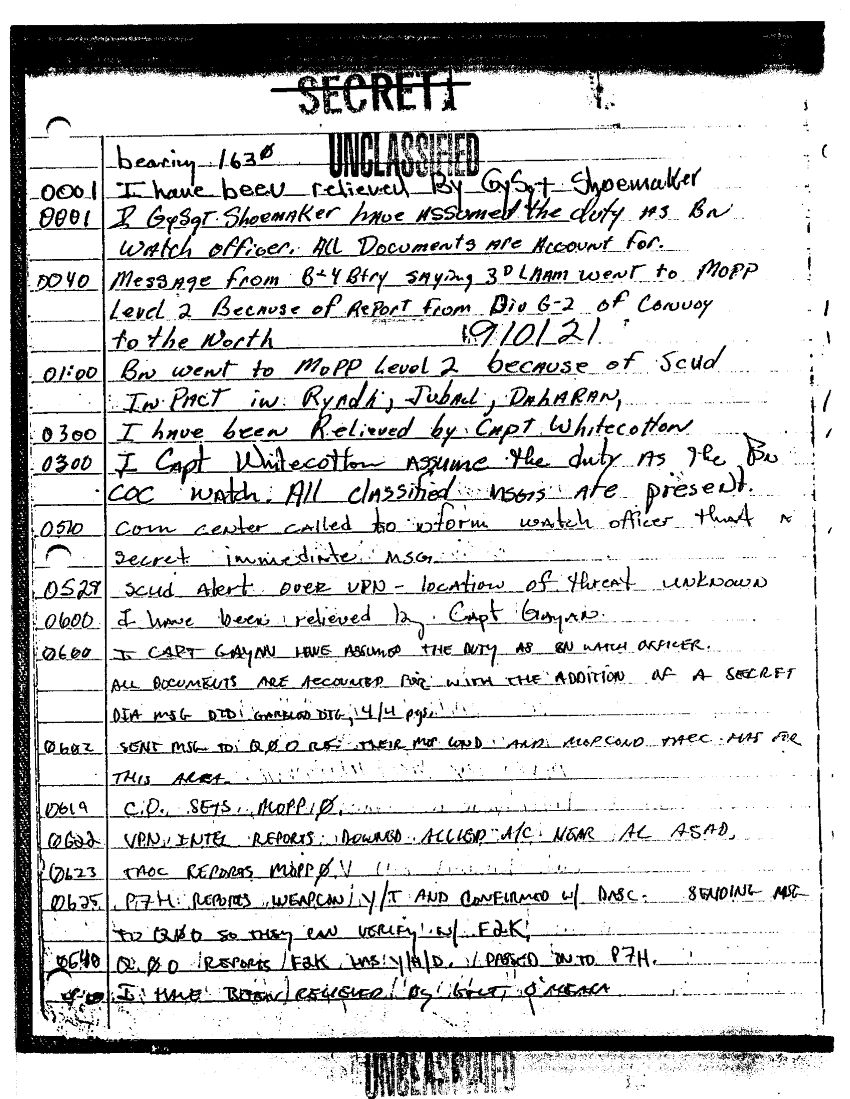 SECRET
UNCLASSIFIED
bearing 163Ø
0001 I have been relieved By GySgt Shoemaker
0001 I GySgt Shoemaker have assumed the duty as Bn
Watch officer. All Documents are Account for.
0040 Message from B+4 Btry saying 3D LAAM went to MOPP
Level 2 Because of Report from Div G-2 of Convoy
to the North 910121
01:00 Bn went to MOPP Level 2 because of Scud
InPact in Ryadh, Jubail, Daharan,
0300 I have been Relieved by Capt Whitecotton
0300 I Capt Whitecotton assume the duty as the Bn
COC watch. All classified msgs are present.
0510 com center called to inform watch officer that a
secret immediate msg.
0529 Scud Alert over VPN - location of threat unknown
0600 I have been relieved by Capt Gayan.
0600 I CAPT GAYAN HAVE ASSUMED THE DUTY AS BN WATCH OFFICER.
ALL DOCUMENTS ARE ACCOUNTED FOR WITH THE ADDITION OF A SECRET
DIA MSG DTD: GARBLED DTG, 4/4 pgs.
0602 SENT MSG TO QØO RE: THEIR COND AND MOPCOND TAOC HAS FOR
THIS AREA.
0619 C.O. SETS MOPP Ø.
0622 VPN INTEL REPORTS DOWNED ALLIED A/C NEAR AL ASAD.
0623 TAOC REPORTS MOPP Ø
0625 P7H REPORTS WEAPCON Y/T AND CONFIRMED W/ DASC. SENDING MSG
TO QØO SO THEY CAN VERIFY W/ F2K.
0640 QØO REPORTS F2K HAS PASSED ONTO P7H.
I HAVE BEEN RELIEVED By O'MEARA
UNCLASSIFIED